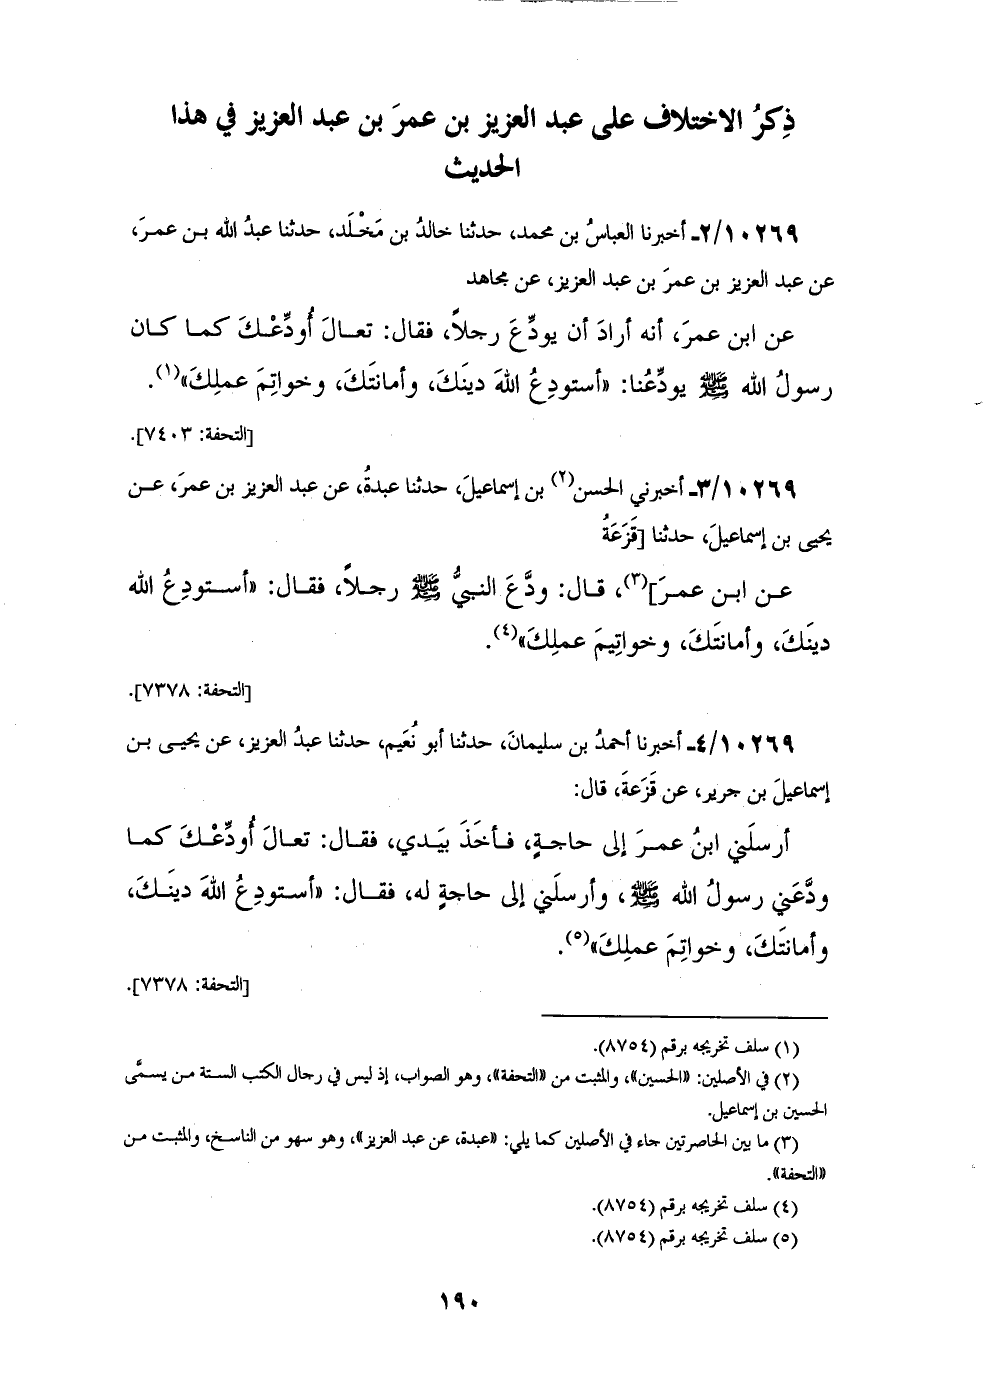 ذِكرُ الاختلاف على عبد العزيز بن عمرَ بن عبد العزيز في هذا
الحديث
٢/١٠٢٦٩ـ أخبرنا العباسُ بن محمد، حدثنا خالدُ بن مَخْلَد، حدثنا عبدُ الله بـن عمـرَ،
عن عبد العزيز بن عمرَ بن عبد العزيز، عن مجاهد
عن ابن عمرَ، أنه أرادَ أن يودِّعَ رجلاً، فقال: تعـالَ أُودِّعْـكَ كمـا كـان
رسولُ الله ﷺ يودِّعُنا: «أستودِعُ اللهَ دينَكَ، وأمانتَكَ، وخواتِمَ عملِكَ»(١).
[التحفة: ٧٤٠٣].
٣/١٠٢٦٩ـ أخبرني الحسن(٢) بن إسماعيلَ، حدثنا عبدةُ، عن عبد العزيز بن عمرَ، عـن
يحيى بن إسماعيلَ، حدثنا [قَزَعَةُ
عـن ابـن عمـرَ](٣)، قـال: ودَّعَ النـبيُّ ﷺ رجـلاً، فقـال: «أسـتودِعُ الله
دينَكَ، وأمانتَكَ، وخواتِيمَ عملِكَ»(٤).
[التحفة: ٧٣٧٨].
٤/١٠٢٦٩ـ أخبرنا أحمدُ بن سليمانَ، حدثنا أبو نُعَيم، حدثنا عبدُ العزيز، عن يحيـى بـن
إسماعيلَ بن جرير، عن قَزَعةَ، قال:
أرسلَني ابنُ عمـرَ إلى حاجـةٍ، فـأخَذَ بيَـدي، فقـال: تعـالَ أُودِّعْـكَ كمـا
ودَّعَني رسولُ الله ﷺ، وأرسلَني إلى حاجةٍ له، فقـال: «أسـتودِعُ اللهَ دينَـكَ،
وأمانتَكَ، وخواتِمَ عملِكَ»(٥).
[التحفة: ٧٣٧٨].
(١) سلف تخريجه برقم (٨٧٥٤).
(٢) في الأصلين: «الحسين»، والمثبت من «التحفة»، وهو الصواب، إذ ليس في رجال الكتب الستة مـن يسمَّى
الحسين بن إسماعيل.
(٣) ما بين الحاصرتين جاء في الأصلين كما يلي: «عبدة، عن عبد العزيز»، وهو سهو من الناسخ، والمثبت مـن
«التحفة».
(٤) سلف تخريجه برقم (٨٧٥٤).
(٥) سلف تخريجه برقم (٨٧٥٤).
١٩٠